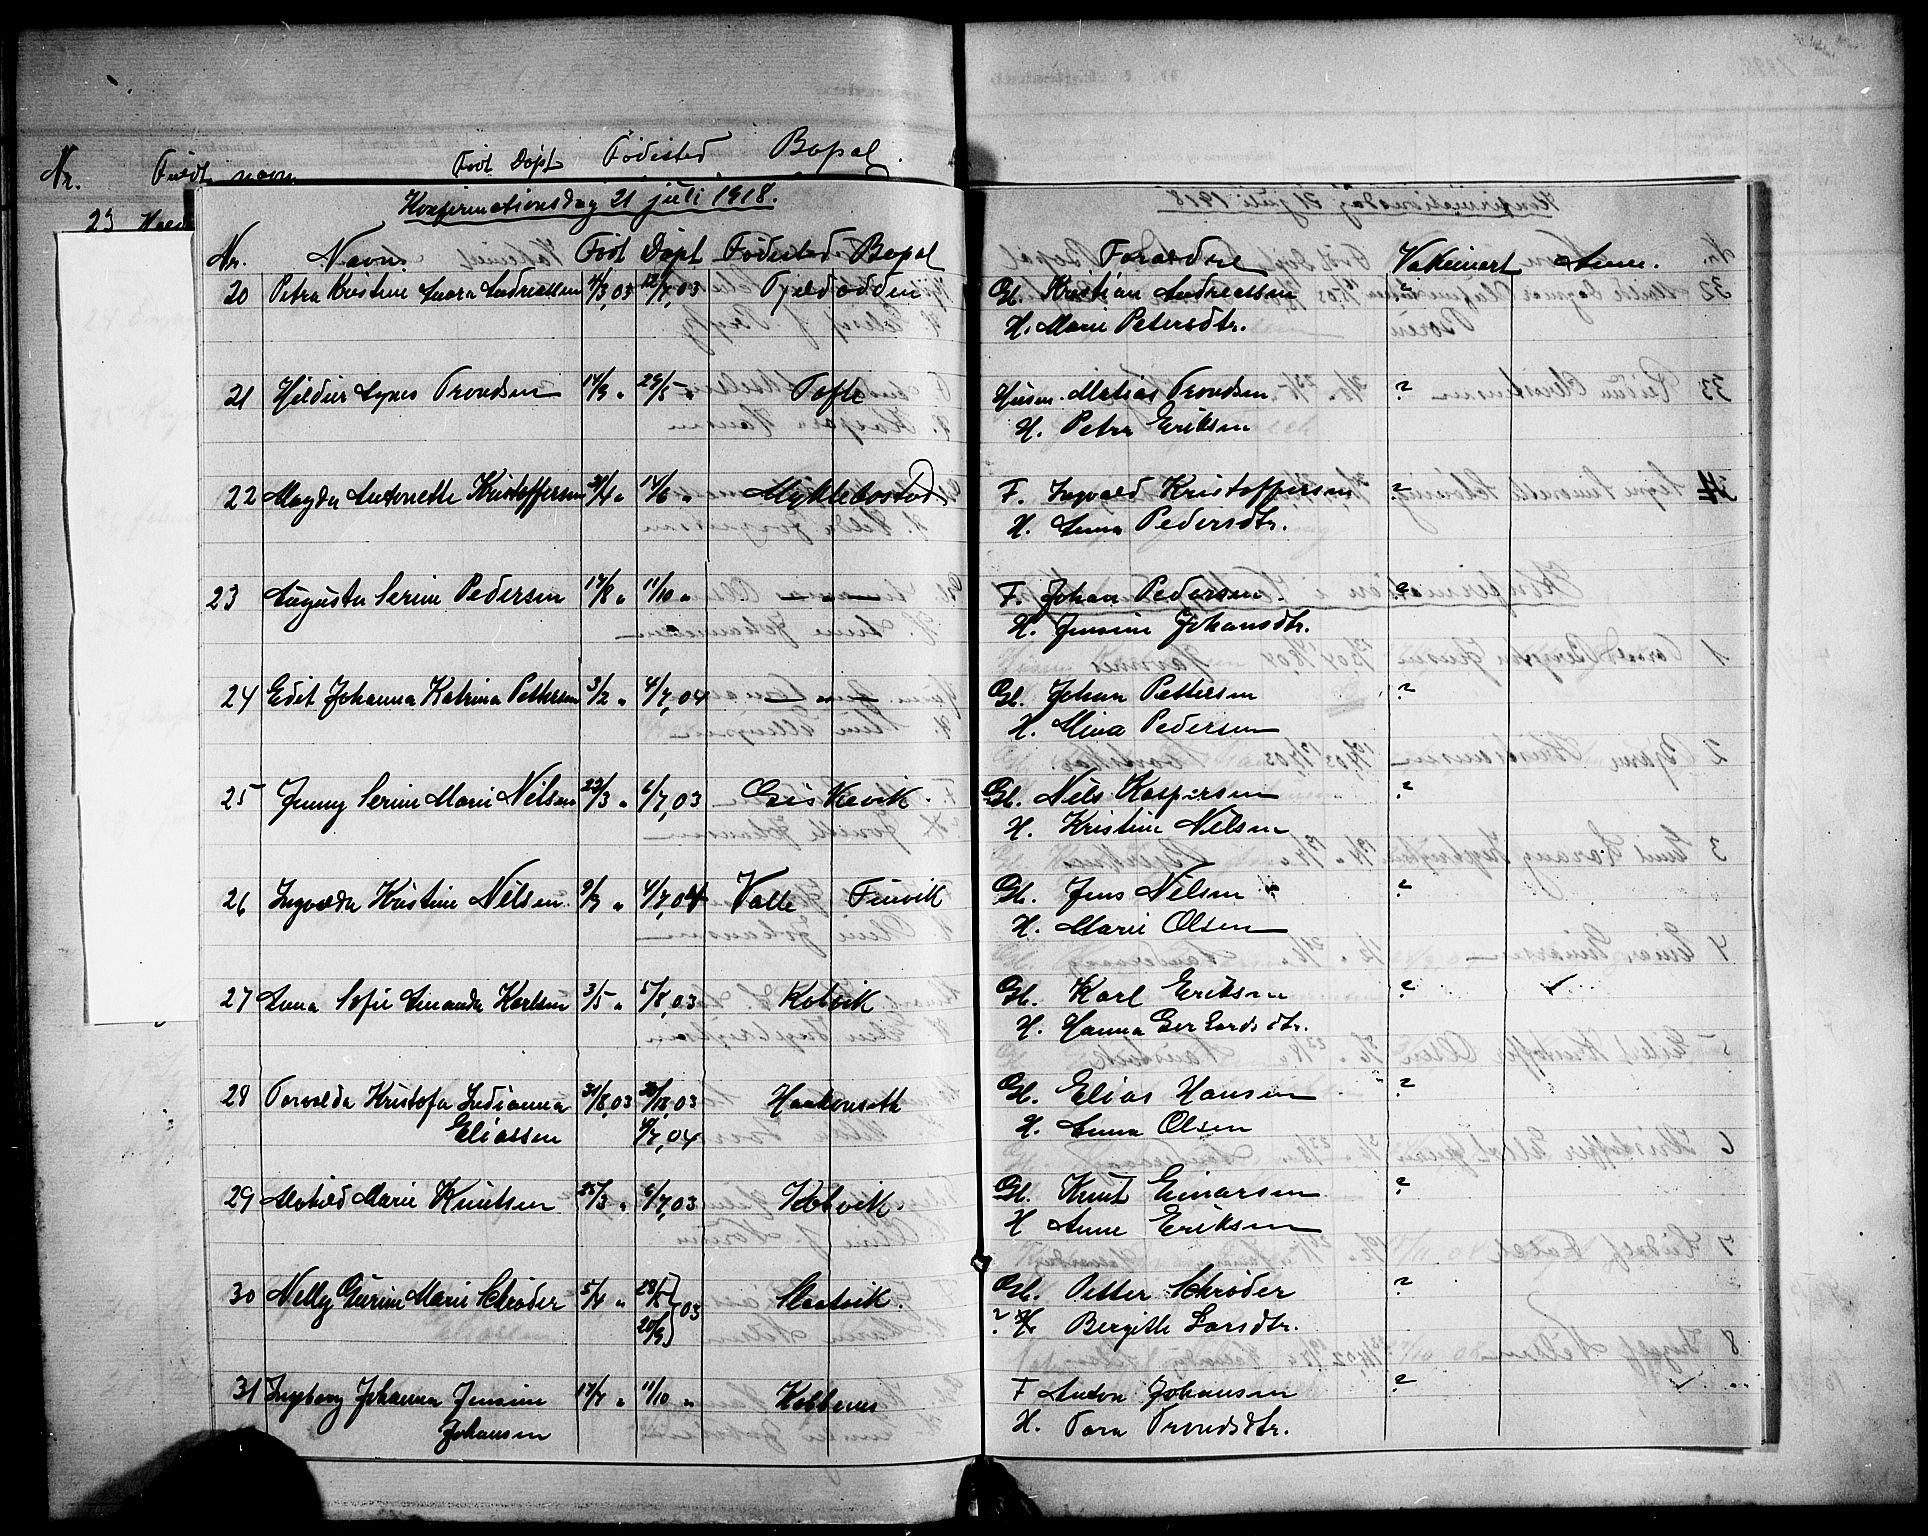 Nr. Fuldt navn Født Døpt Fødested Bopæl.
23
Konfirmationsdag 21 juli 1918.
Nr. Navn. Født Døpt Fødested Bopæl Forældre Vakcinert Anm.
20 Petra Kristine Laura Andreassen 4/3,03 12/7,03 Fjeldodden Gb. Kristian Andreassen
H. Marie Petersdtr.
21 Hildur Agnes Trondsen 14/3 „ 24/5 „ Tofte Husm. Matias Trondsen ?
H. Petra Eriksen
22 Magda Antonette Kristoffersen /4 „ 14/6 „ Myklebostad F. Ingvald Kristoffersen ?
H. Anna Pedersdtr.
23 Augusta Serine Pedersen 17/8 „ 11/10 „ — „ — F. Johan Pedersen. ?
H. Jensine Johansdtr.
24 Edit Johanna Katrina Pettersen 3/2 „ 4/7,04 — „ — Gb. Johan Pettersen ?
H. Mina Pedersen
25 Jenny Serine Marie Nilsen 22/3 „ 6/7,03 Geiskevik. Gb. Nils Kaspersen ?
H. Kristine Nilsen
26 Ingvalda Kristine Nilsen 9/3 „ 4/7,04 Valle Finvik Gb. Jens Nilsen ?
H. Marie Olsen
27 Anna Sofie Amanda Karlsen 3/5 „ 5/8,03 Kobvik Gb. Karl Eriksen ?
H. Hanna Gerhardsdtr.
28 Torvalda Kristofa Indianna /8,03 /18,03 Haakonseth Gb. Elias Hansen ?
Eliassen /7,04 H. Anna Olsen
29 Matild Marie Knutsen 25/3 „ 6/7,03 Kobvik. Gb. Knut Einarsen ?
H Anne Eriksen
30 Nelly Gurine Marie Schrøder 5/4 „ 29/5 } 03 Slaatvik. Gb. Petter Schrøder ?
20/9 ? H. Bergitte Larsdtr.
31 Ingborg Johanna Jensine 17/7 „ 11/10 „ Kobbenes F Anton Johansen ?
Johansen H. Tora Trondsdtr.